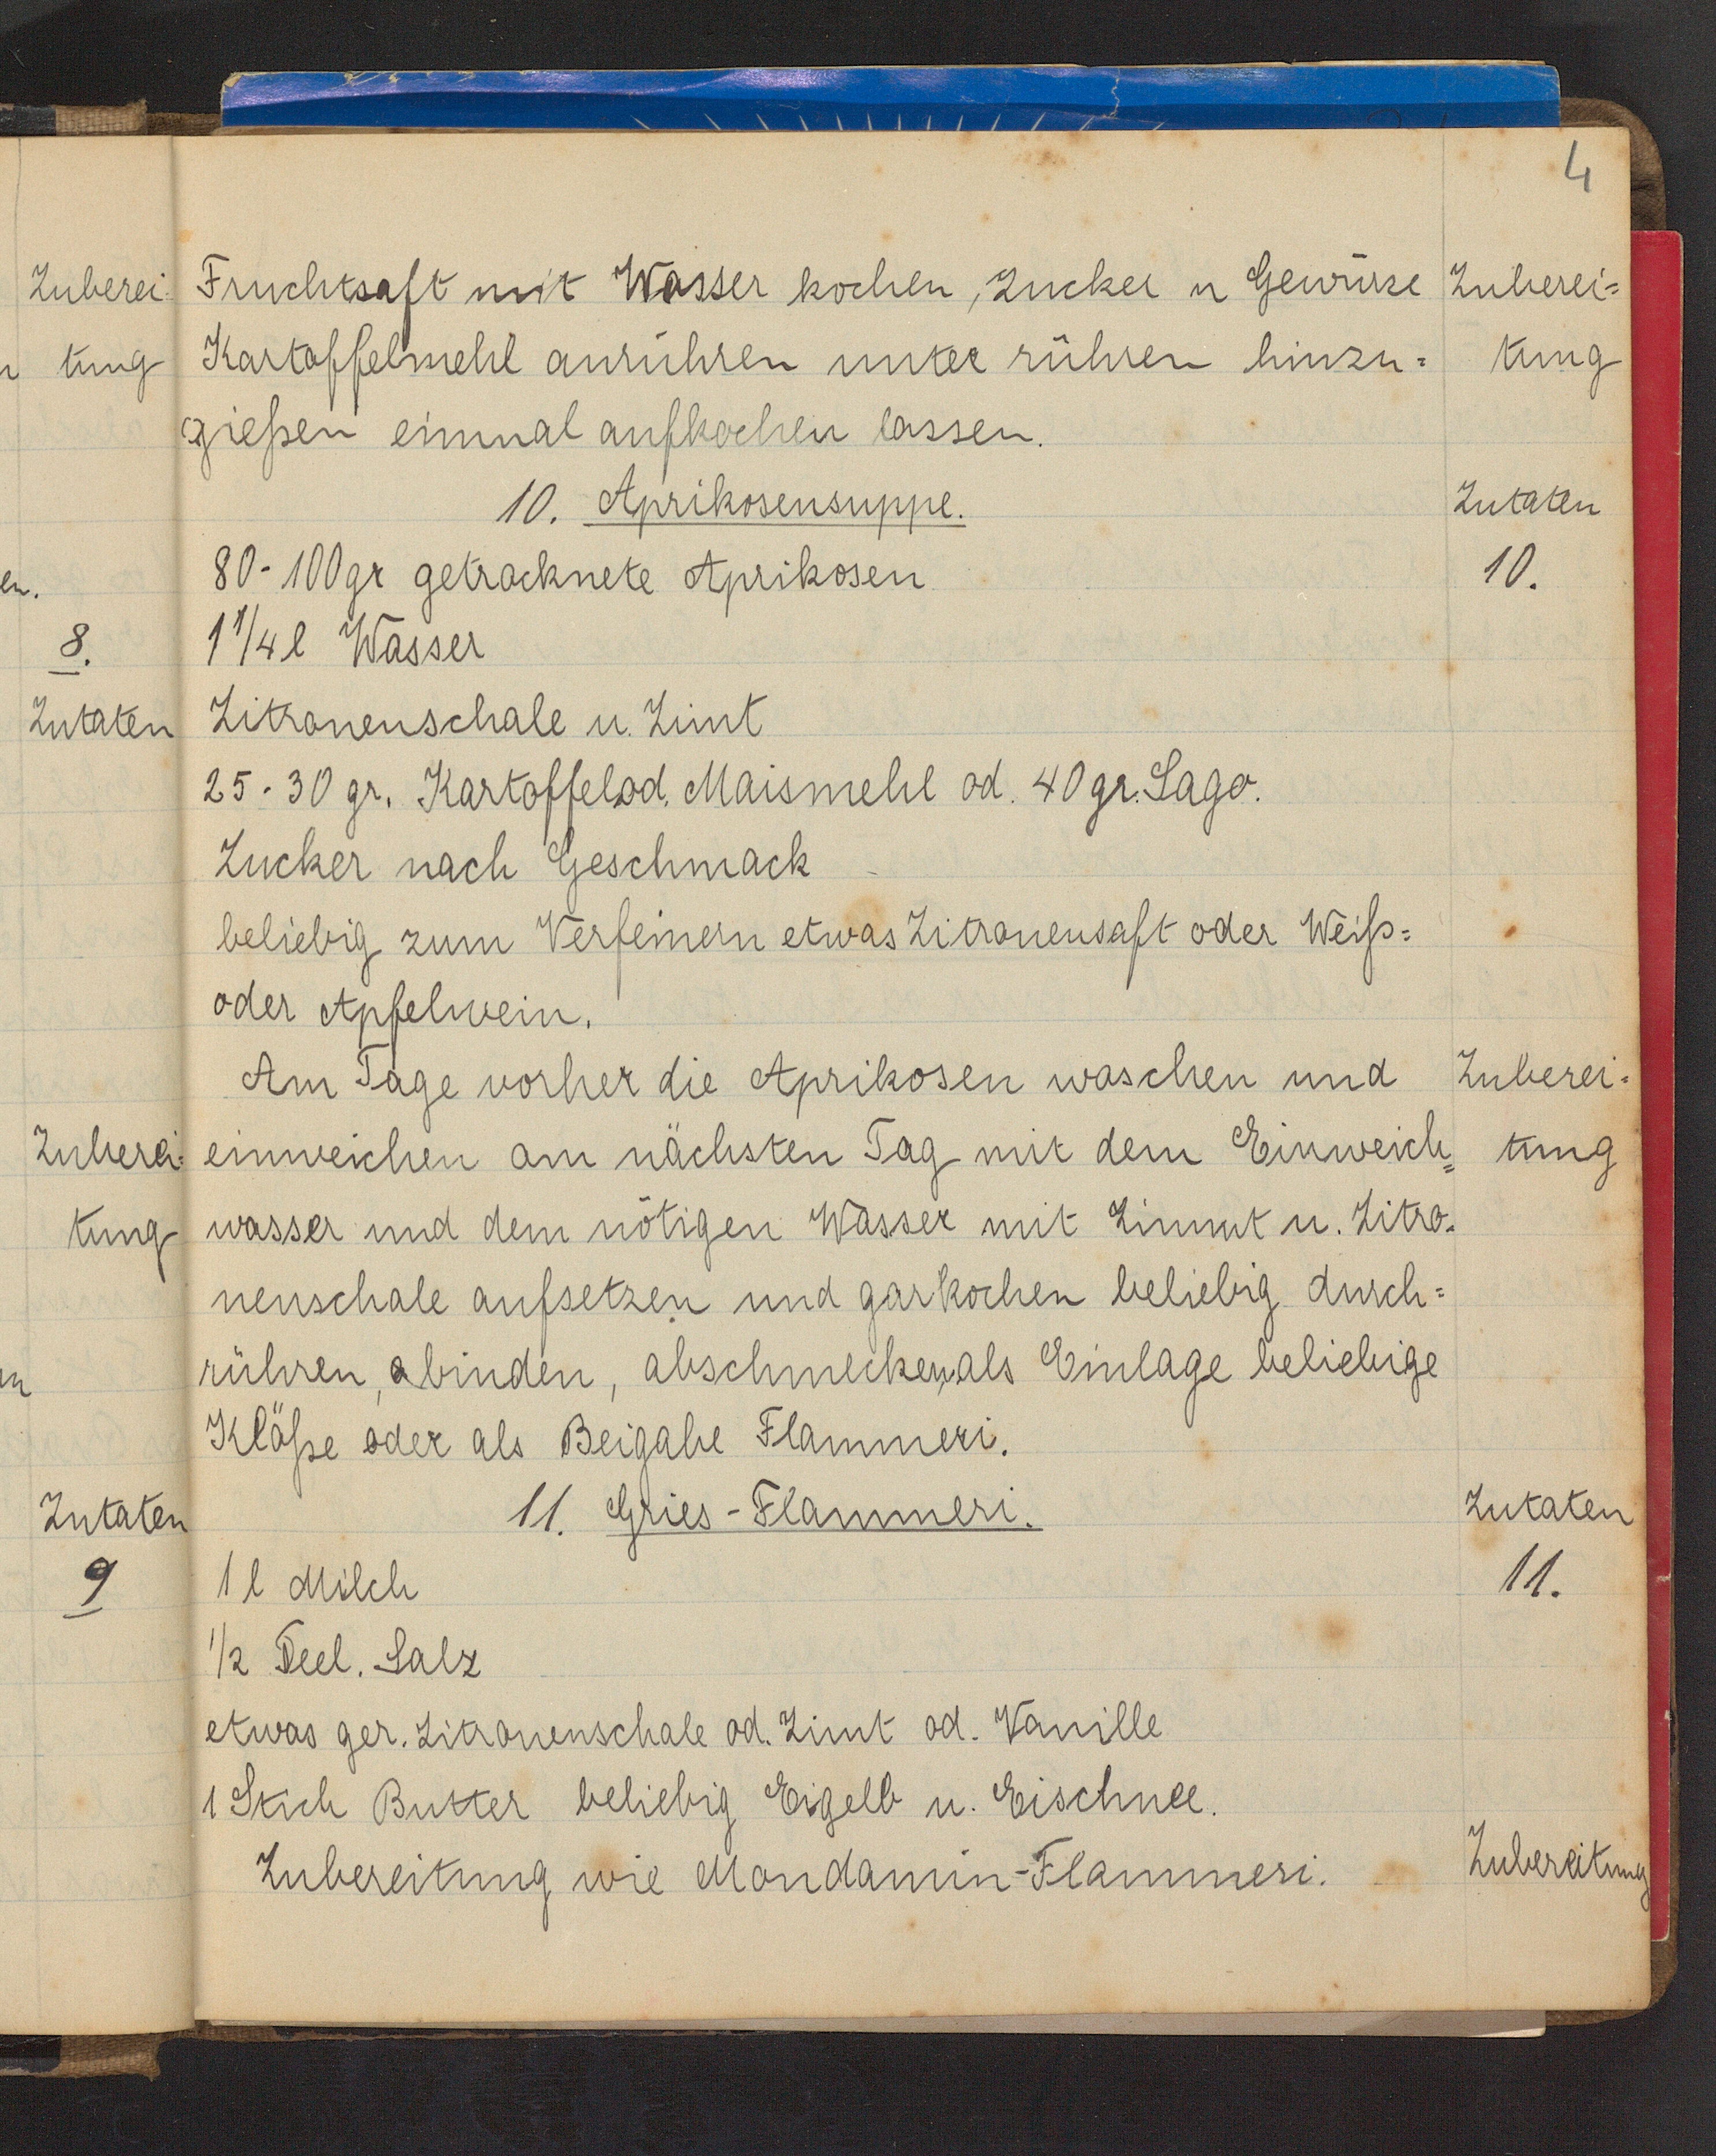 4
Zuberei-
tung
en.
8.
Zutaten
Zuberei-
tung
Zutaten
9
Fruchtsaft mit Wasser kochen, Zucker u Gewürze
Kartoffelmehl anrühren unter rühren hinzu=
gießen einmal aufkochen lassen.
10. Aprikosensuppe.
80-100gr getrocknete Aprikosen
1 1/4 l Wasser
Zitronenschale u. Zimt
25-30 gr. Kartoffelod. Maismehl od. 40gr. Sago.
Zucker nach Geschmack
beliebig zum Verfeinern etwas Zitronensaft oder Weiß=
oder Apfelwein.
Am Tage vorher die Aprikosen waschen und
einweichen am nächsten Tag mit dem Einweich=
wasser und dem nötigen Wasser mit Zimmt u. Zitro-
nenschale aufsetzen und garkochen beliebig durch=
rühren, abinden, abschmecken, als Einlage beliebige
Klöße oder als Beigabe Flammeri.
11. Gries-Flammeri.
1 l Milch
1/2 Teel. Salz
etwas ger. Zitronenschale od. Zimt od. Vanille
1 Stich Butter beliebig Eigelb u. Eischnee.
Zubereitung wie Mondamin-Flammeri.
Zuberei=
tung
Zutaten
10.
Zuberei-
tung
Zutaten
11.
Zubereitung